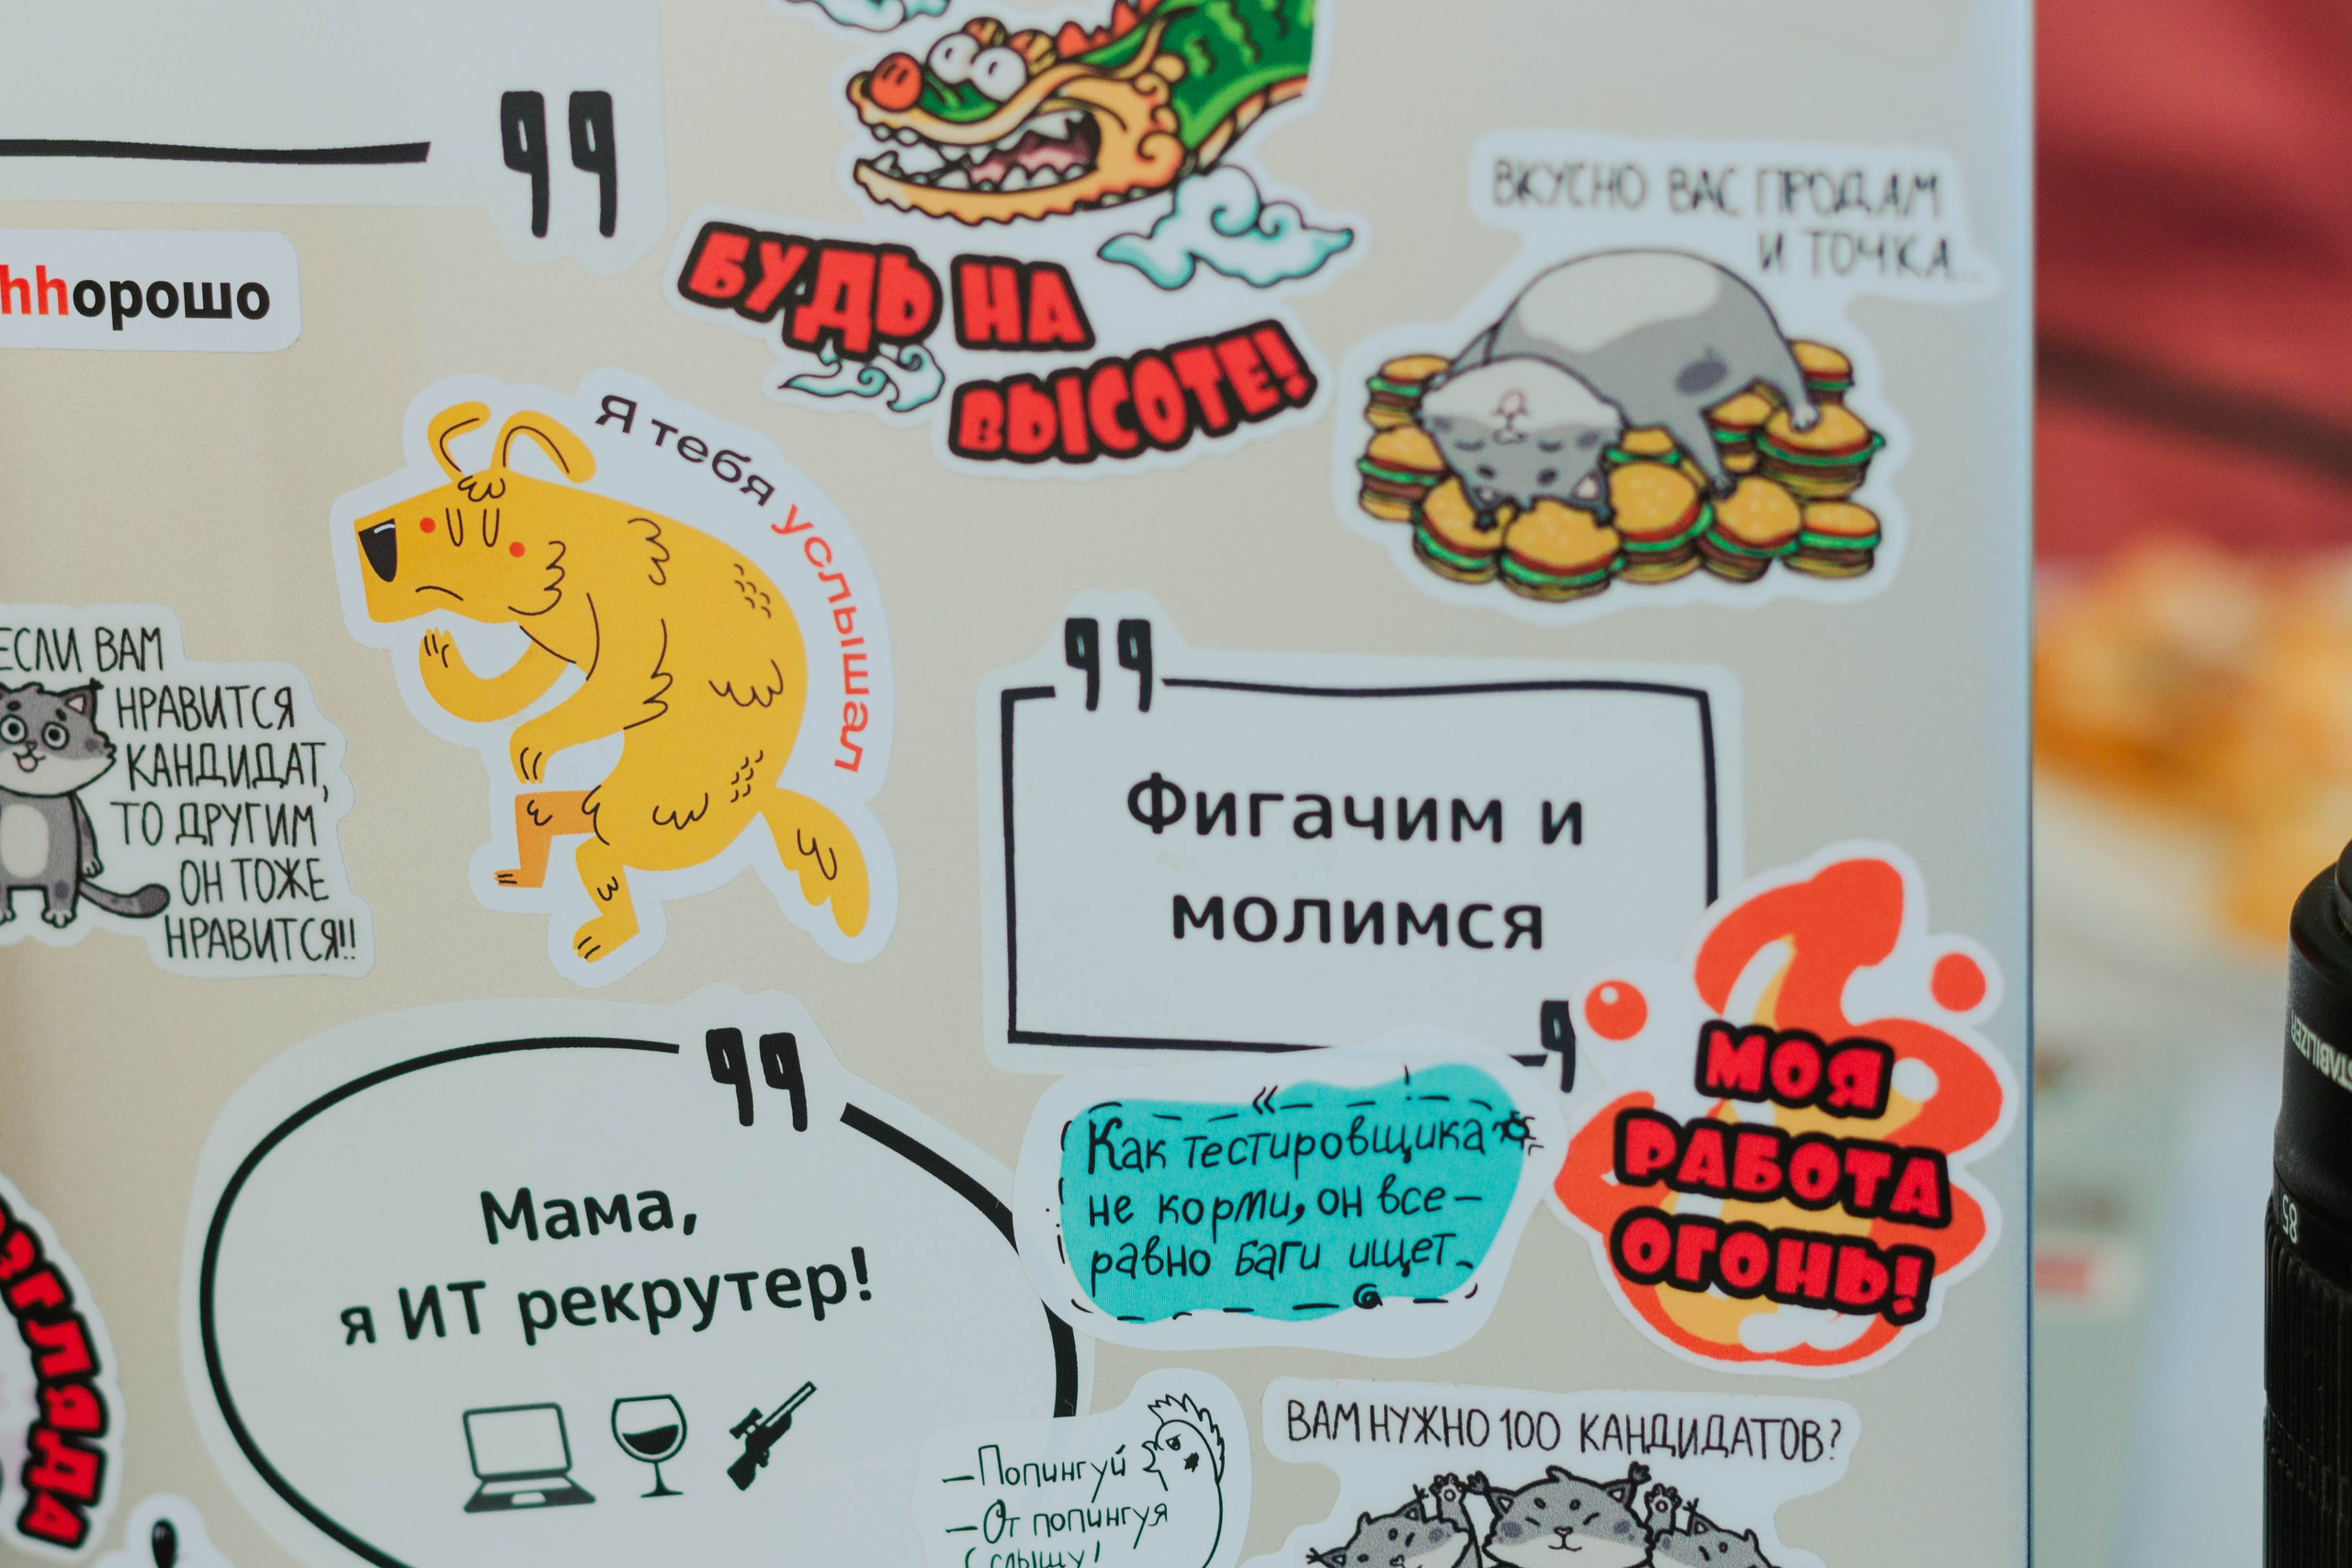 hhорошо
БУДЬ НА
ВЫСОТЕ!
ВКУСНО ВАС ПРОДАМ
И ТОЧКА...
Я тебя услышал
ЕСЛИ ВАМ
НРАВИТСЯ
КАНДИДАТ,
ТО ДРУГИМ
ОН ТОЖЕ
НРАВИТСЯ!!
Фигачим и
молимся
МОЯ
РАБОТА
ОГОНЬ!
Как тестировщика
не корми, он все-
равно баги ищет
Мама,
я ИТ рекрутер!
ЗГЛЯДА
—Попингуй
—От попингуя
слышу!
ВАМ НУЖНО 100 КАНДИДАТОВ?
STABILIZER
85